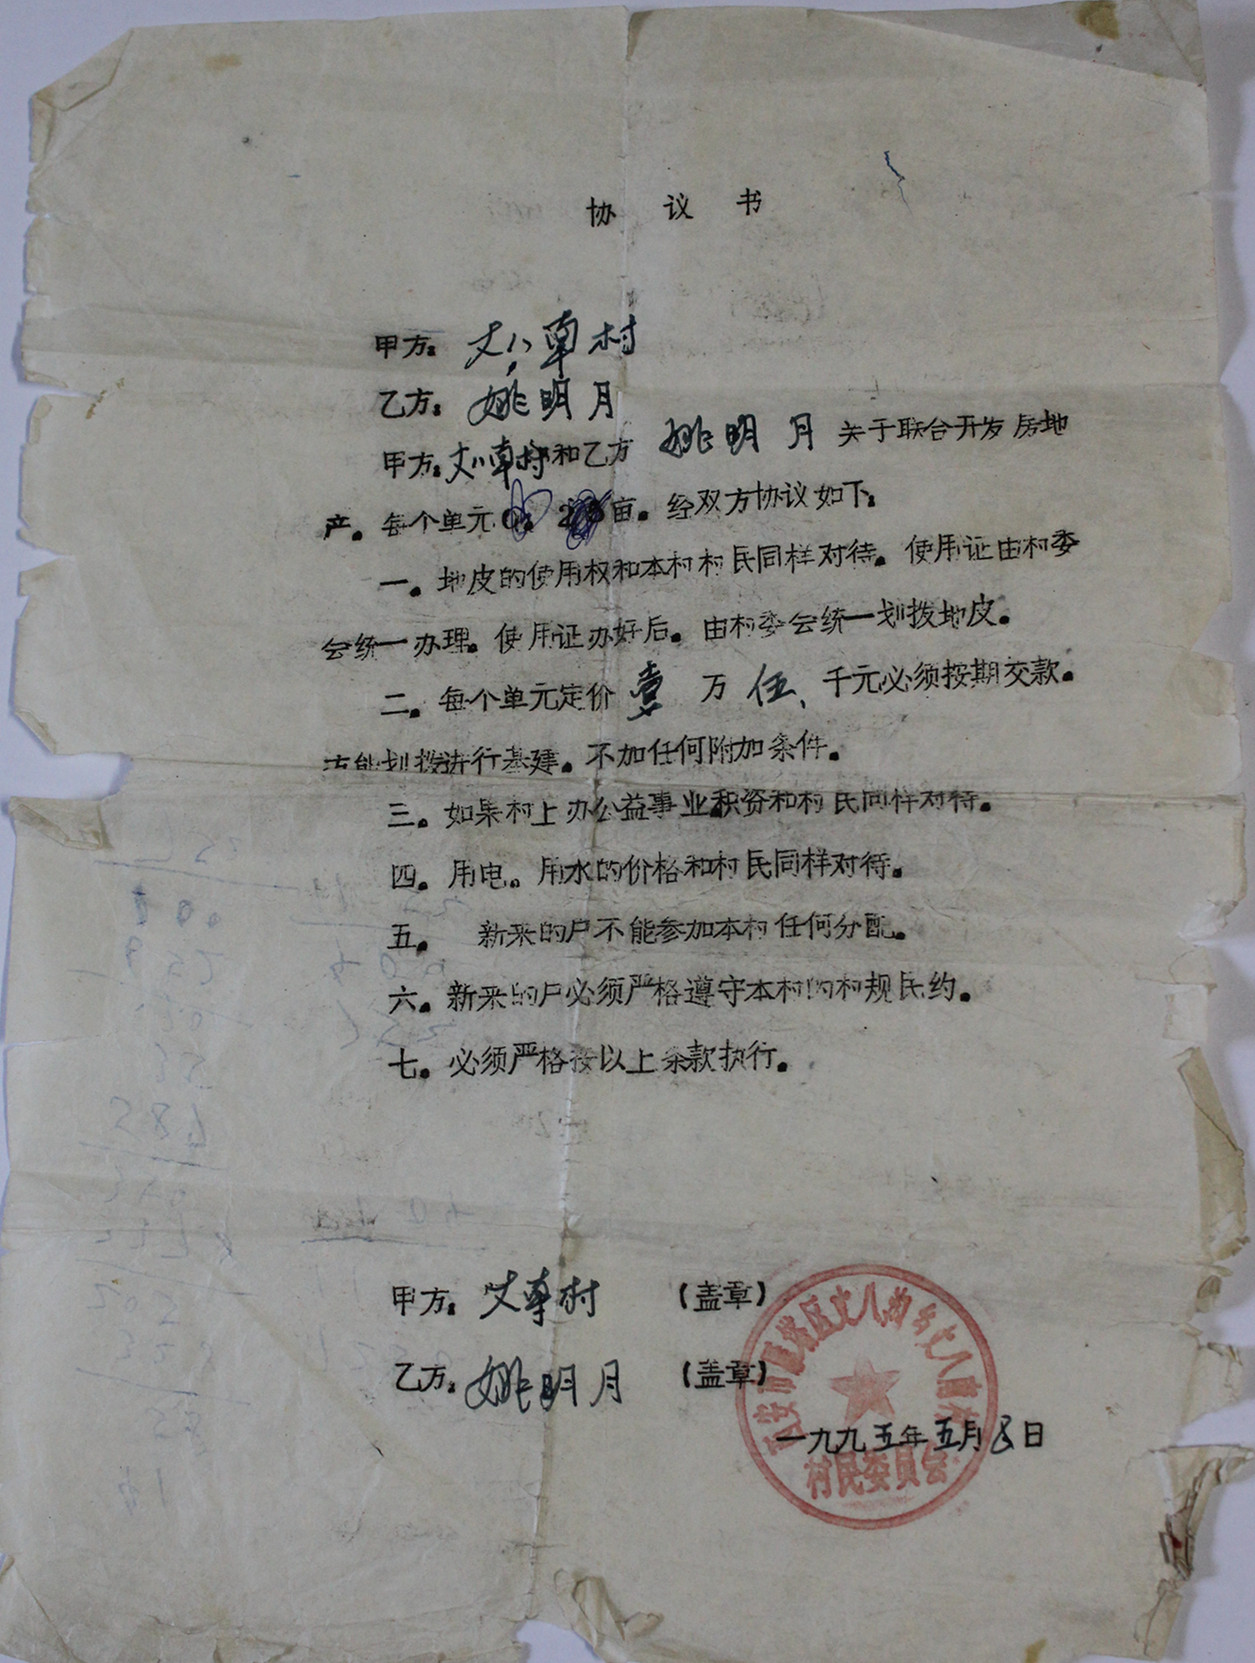 协 议 书
甲方：丈八南村
乙方：姚明月
甲方：丈八南村和乙方 姚明月 关于联合开发房地
产。每个单元 亩。经双方协议如下：
一。地皮的使用权和本村村民同样对待。使用证由村委
会统一办理。使用证办好后。由村委会统一划拨地皮。
二。每个单元定价 壹 万 伍、千元必须按期交款。
方能划拨进行基建。不加任何附加条件。
三。如果村上办公益事业积资和村民同样对待。
四。用电。用水的价格和村民同样对待。
五。 新来的户不能参加本村任何分配。
六。新来的户必须严格遵守本村的村规民约。
七。必须严格按以上条款执行。
甲方：丈八南村 （盖章）
乙方：姚明月 （盖章）
一九九五年五月 日
村民委员会